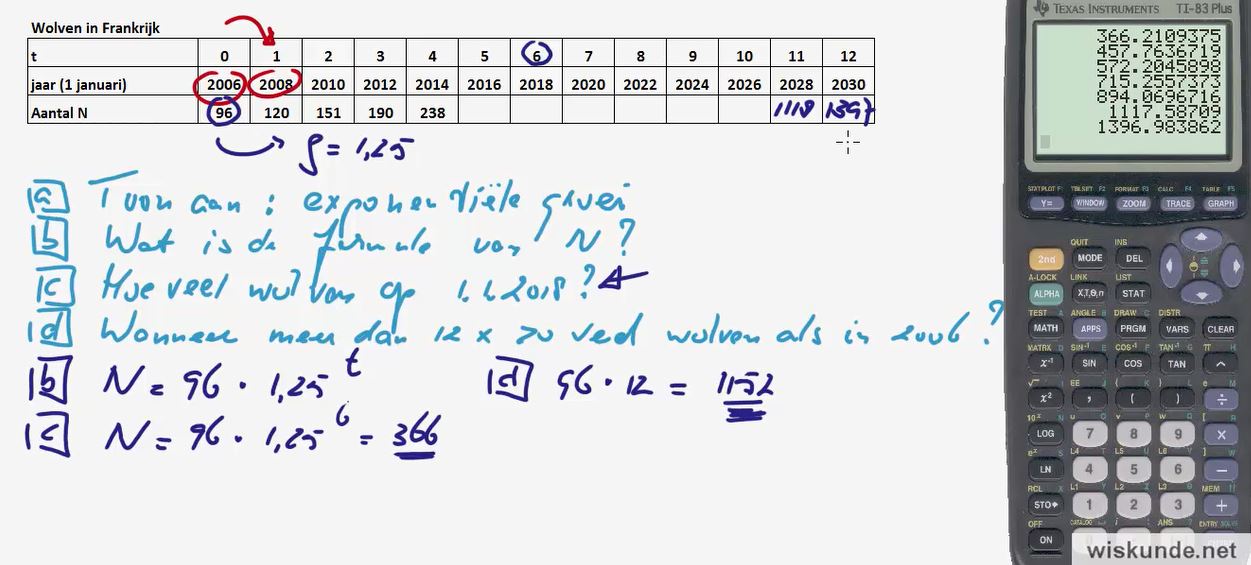 Wolven in Frankrijk
t 0 1 2 3 4 5 6 7 8 9 10 11 12
jaar (1 januari) 2006 2008 2010 2012 2014 2016 2018 2020 2022 2024 2026 2028 2030
Aantal N 96 120 151 190 238 1118 1397
g = 1,25
a Toon aan : exponentiële groei
b Wat is de formule van N ?
c Hoeveel wolven op 1.1.2018 ?
d Wanneer meer dan 12 x zo veel wolven als in 2006 ?
b N = 96 · 1,25 t
d 96 · 12 = 1152
c N = 96 · 1,25 6 = 366
TEXAS INSTRUMENTS TI-83 Plus
366.2109375
457.7636719
572.2045898
715.2557373
894.0696716
1117.58709
1396.983862
STATPLOT F1 TBLSET F2 FORMAT F3 CALC F4 TABLE F5
Y= WINDOW ZOOM TRACE GRAPH
QUIT INS
2nd MODE DEL
A-LOCK LINK LIST
ALPHA X,T,θ,n STAT
TEST A ANGLE B DRAW C DISTR
MATH APPS PRGM VARS CLEAR
MATRX D SIN-1 E COS-1 F TAN-1 G π H
x-1 SIN COS TAN ^
x2 , ( ) ÷
LOG 7 8 9 ×
LN 4 5 6 −
RCL X L1 Y L2 Z L3 θ MEM "
STO 1 2 3 +
OFF CATALOG ANS ENTRY SOLVE
ON
wiskunde.net